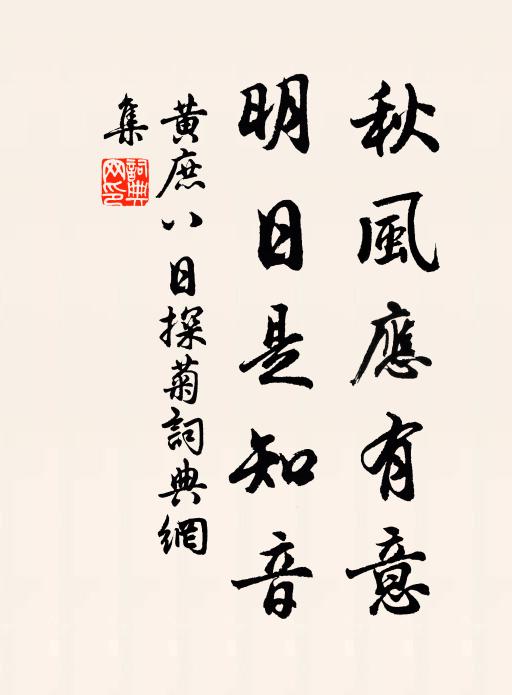 秋風應有意
明日是知音
黃庶八日探菊詞典網
集
詞典
網印